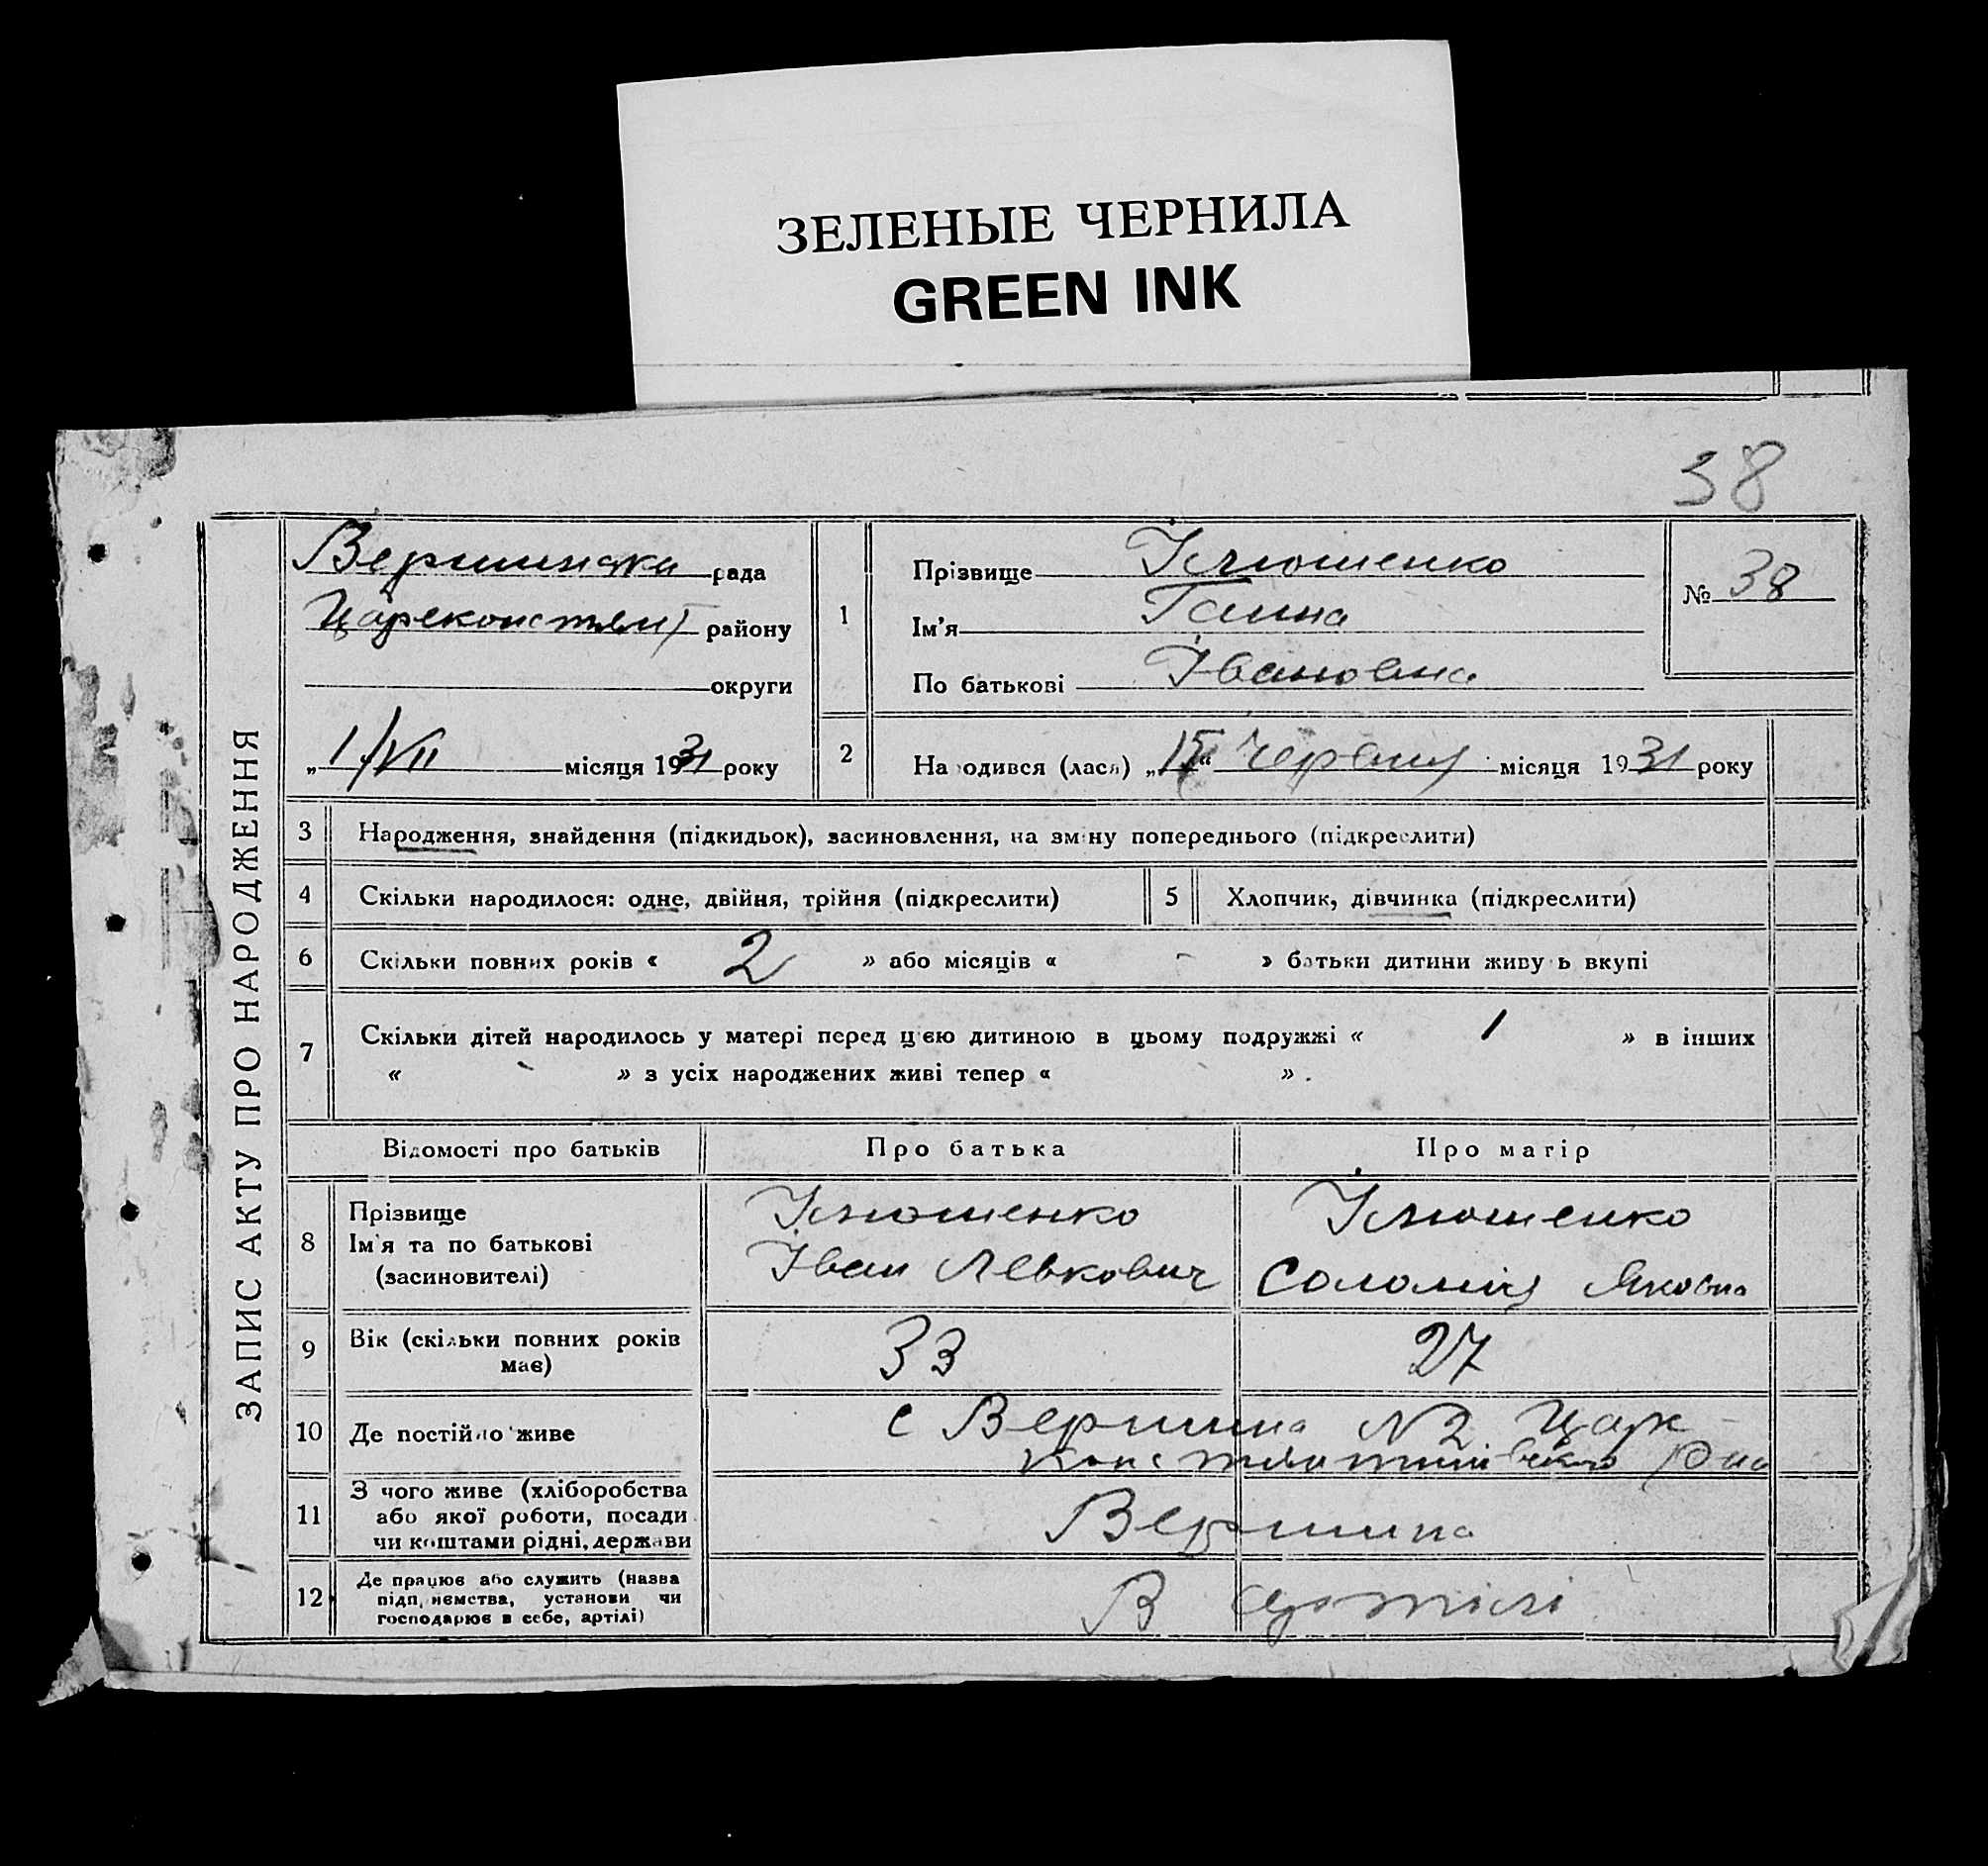 ЗЕЛЕНЫЕ ЧЕРНИЛА
GREEN INK
38
ЗАПИС АКТУ ПРО НАРОДЖЕННЯ
Вершинська рада
Цареконстянт району
округи
„1/VII місяця 1931 року
1
Прізвище Ілюшенко
Ім'я Ганна
По батькові Івановна
№ 38
2
Народився (лася) „15“ Червня місяця 1931 року
3 Народження, знайдення (підкидьок), засиновлення, на зміну попереднього (підкреслити)
4 Скільки народилося: одне, двійня, трійня (підкреслити)
5 Хлопчик, дівчинка (підкреслити)
6 Скільки повних років « 2 » або місяців « - » батьки дитини живуть вкупі
7 Скільки дітей народилось у матері перед цією дитиною в цьому подружжі « 1 » в інших
« - » з усіх народжених живі тепер « » .
Відомості про батьків Про батька Про матір
8
Прізвище
Ім'я та по батькові
(засиновителі)
Ілюшенко
Іван Левкович
Ілюшенко
Соломія Яковна
9 Вік (скільки повних років
має)
33
27
10 Де постійно живе
с Вершина N2 Царе-
констянтинівського Р-на
11
З чого живе (хліборобства
або якої роботи, посади
чи коштами рідні, держави
Вершина
12
Де працює або служить (назва
підприємства, установи чи
господарює в себе, артілі)
В артілі